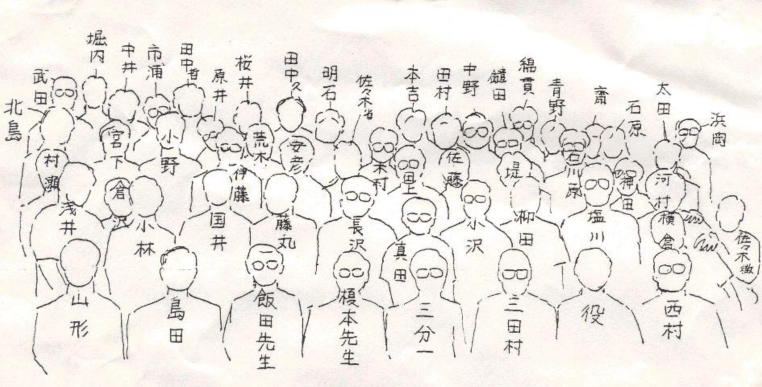 堀内
中井
市浦
田中哲
原井
桜井
田中久
明石
佐々木
本吉
田村
中野
鑓田
綿貫
青野
齋
石原
太田
浜岡
武田
北島
宮下
小野
荒木
安彦
木村
佐藤
堤
石川原
神田
河村
村瀬
倉沢
伊藤
田上
浅井
小林
国井
藤丸
長沢
真田
小沢
柳田
塩川
横倉
佐々木徹
山形
島田
飯田先生
榎本先生
三分一
三田村
役
西村